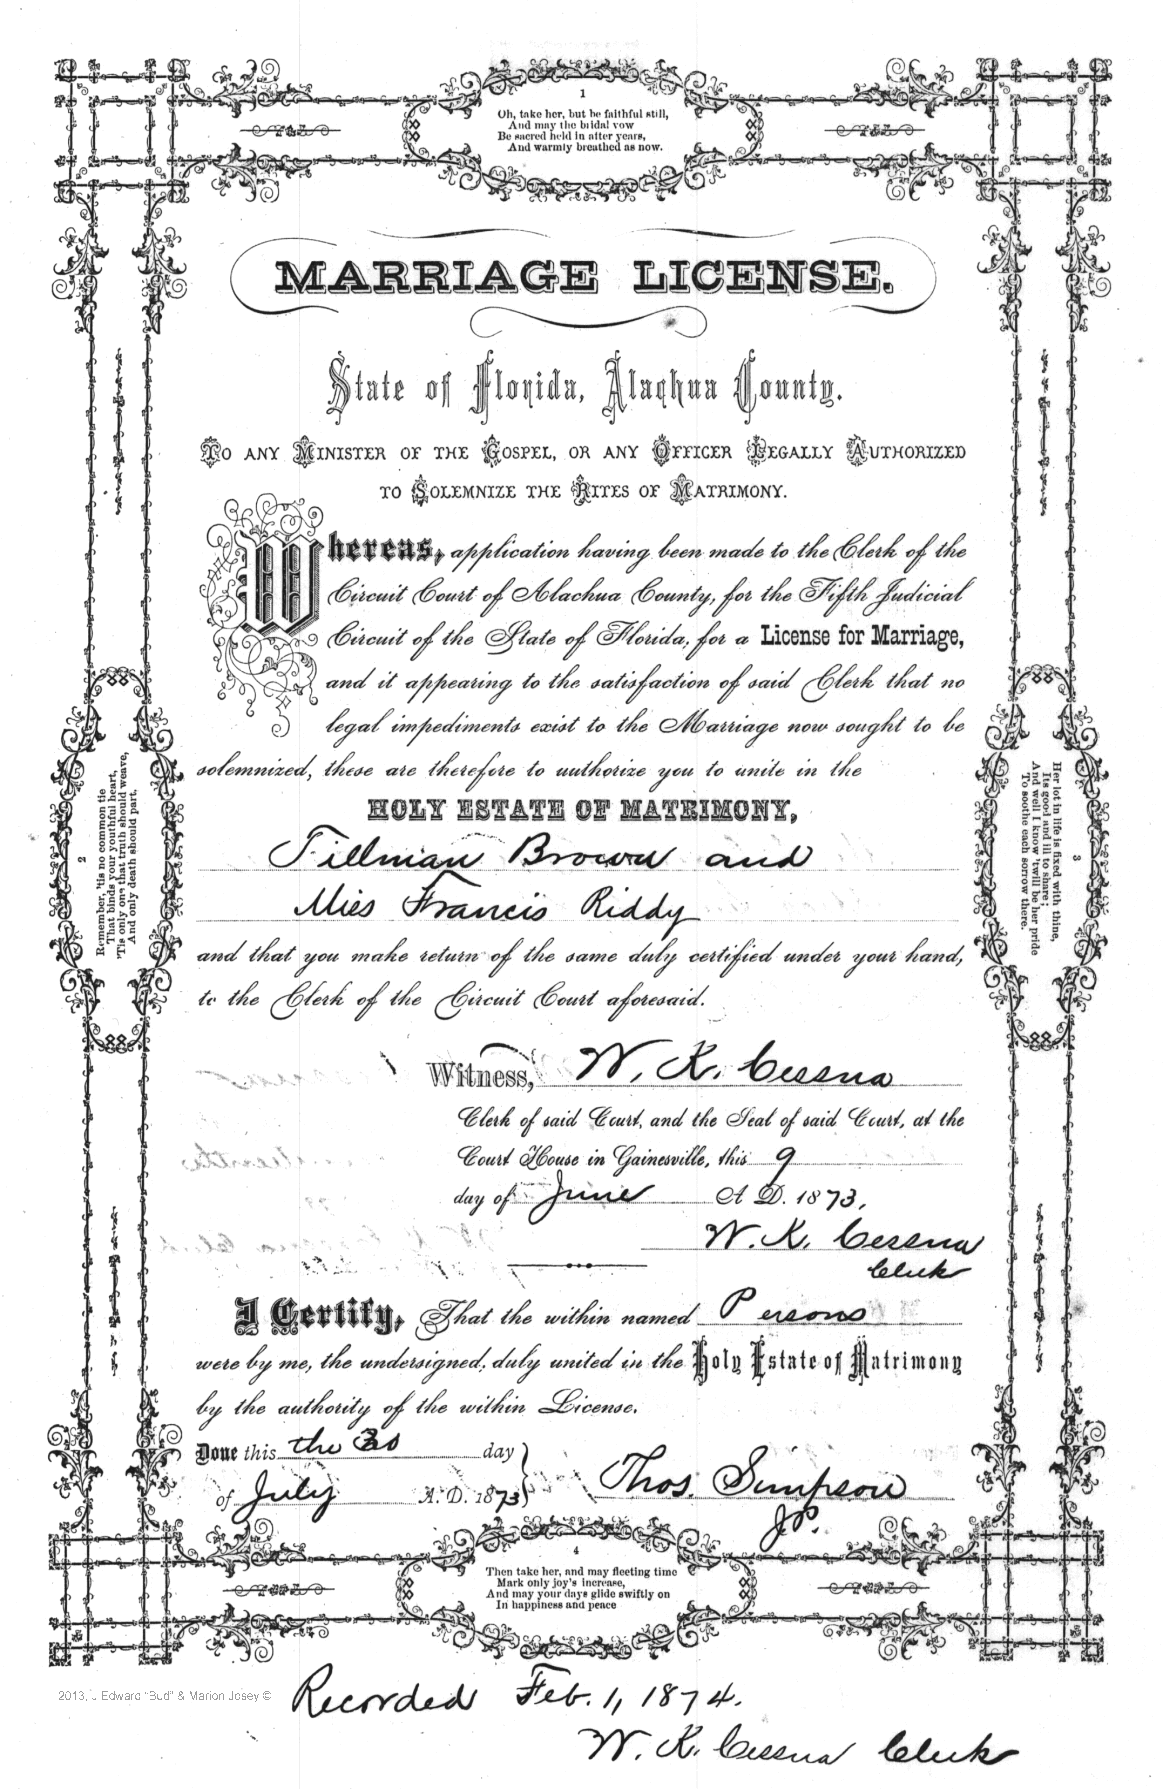 1
Oh, take her, but be faithful still,
And may the bridal vow
Be sacred held in after years,
And warmly breathed as now.
MARRIAGE LICENSE.
State of Florida, Alachua County.
TO ANY MINISTER OF THE GOSPEL, OR ANY OFFICER LEGALLY AUTHORIZED
TO SOLEMNIZE THE RITES OF MATRIMONY.
Whereas, application having been made to the Clerk of the
Circuit Court of Alachua County, for the Fifth Judicial
Circuit of the State of Florida, for a License for Marriage,
and it appearing to the satisfaction of said Clerk that no
legal impediments exist to the Marriage now sought to be
solemnized, these are therefore to authorize you to unite in the
HOLY ESTATE OF MATRIMONY,
Tillman Brown and
Miss Francis Riddy
and that you make return of the same duly certified under your hand,
to the Clerk of the Circuit Court aforesaid.
2
Remember, 'tis no common tie
That binds your youthful heart,
'Tis only one that truth should weave,
And only death should part.
3
Her lot in life is fixed with thine,
Its good and ill to share;
And well I know 'twill be her pride
To soothe each sorrow there.
Witness, W. K. Cessna
Clerk of said Court, and the Seal of said Court, at the
Court House in Gainesville, this 9
day of June A. D. 1873.
W. K. Cessna
Clerk
I Certify, That the within named Persons
were by me, the undersigned, duly united in the Holy Estate of Matrimony
by the authority of the within License.
Done this the day
of July A. D. 1873
Thos. Simpson
J.P.
4
Then take her, and may fleeting time
Mark only joy's increase,
And may your days glide swiftly on
In happiness and peace
2013, Edward "Bud" & Marion Josey ©
Recorded Feb. 1, 1874.
W. K. Cessna Clerk